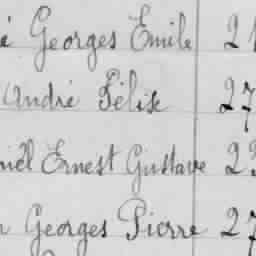 é Georges Emile 21
André Félix 27
niel Ernest Gustave 23
n Georges Pierre 27